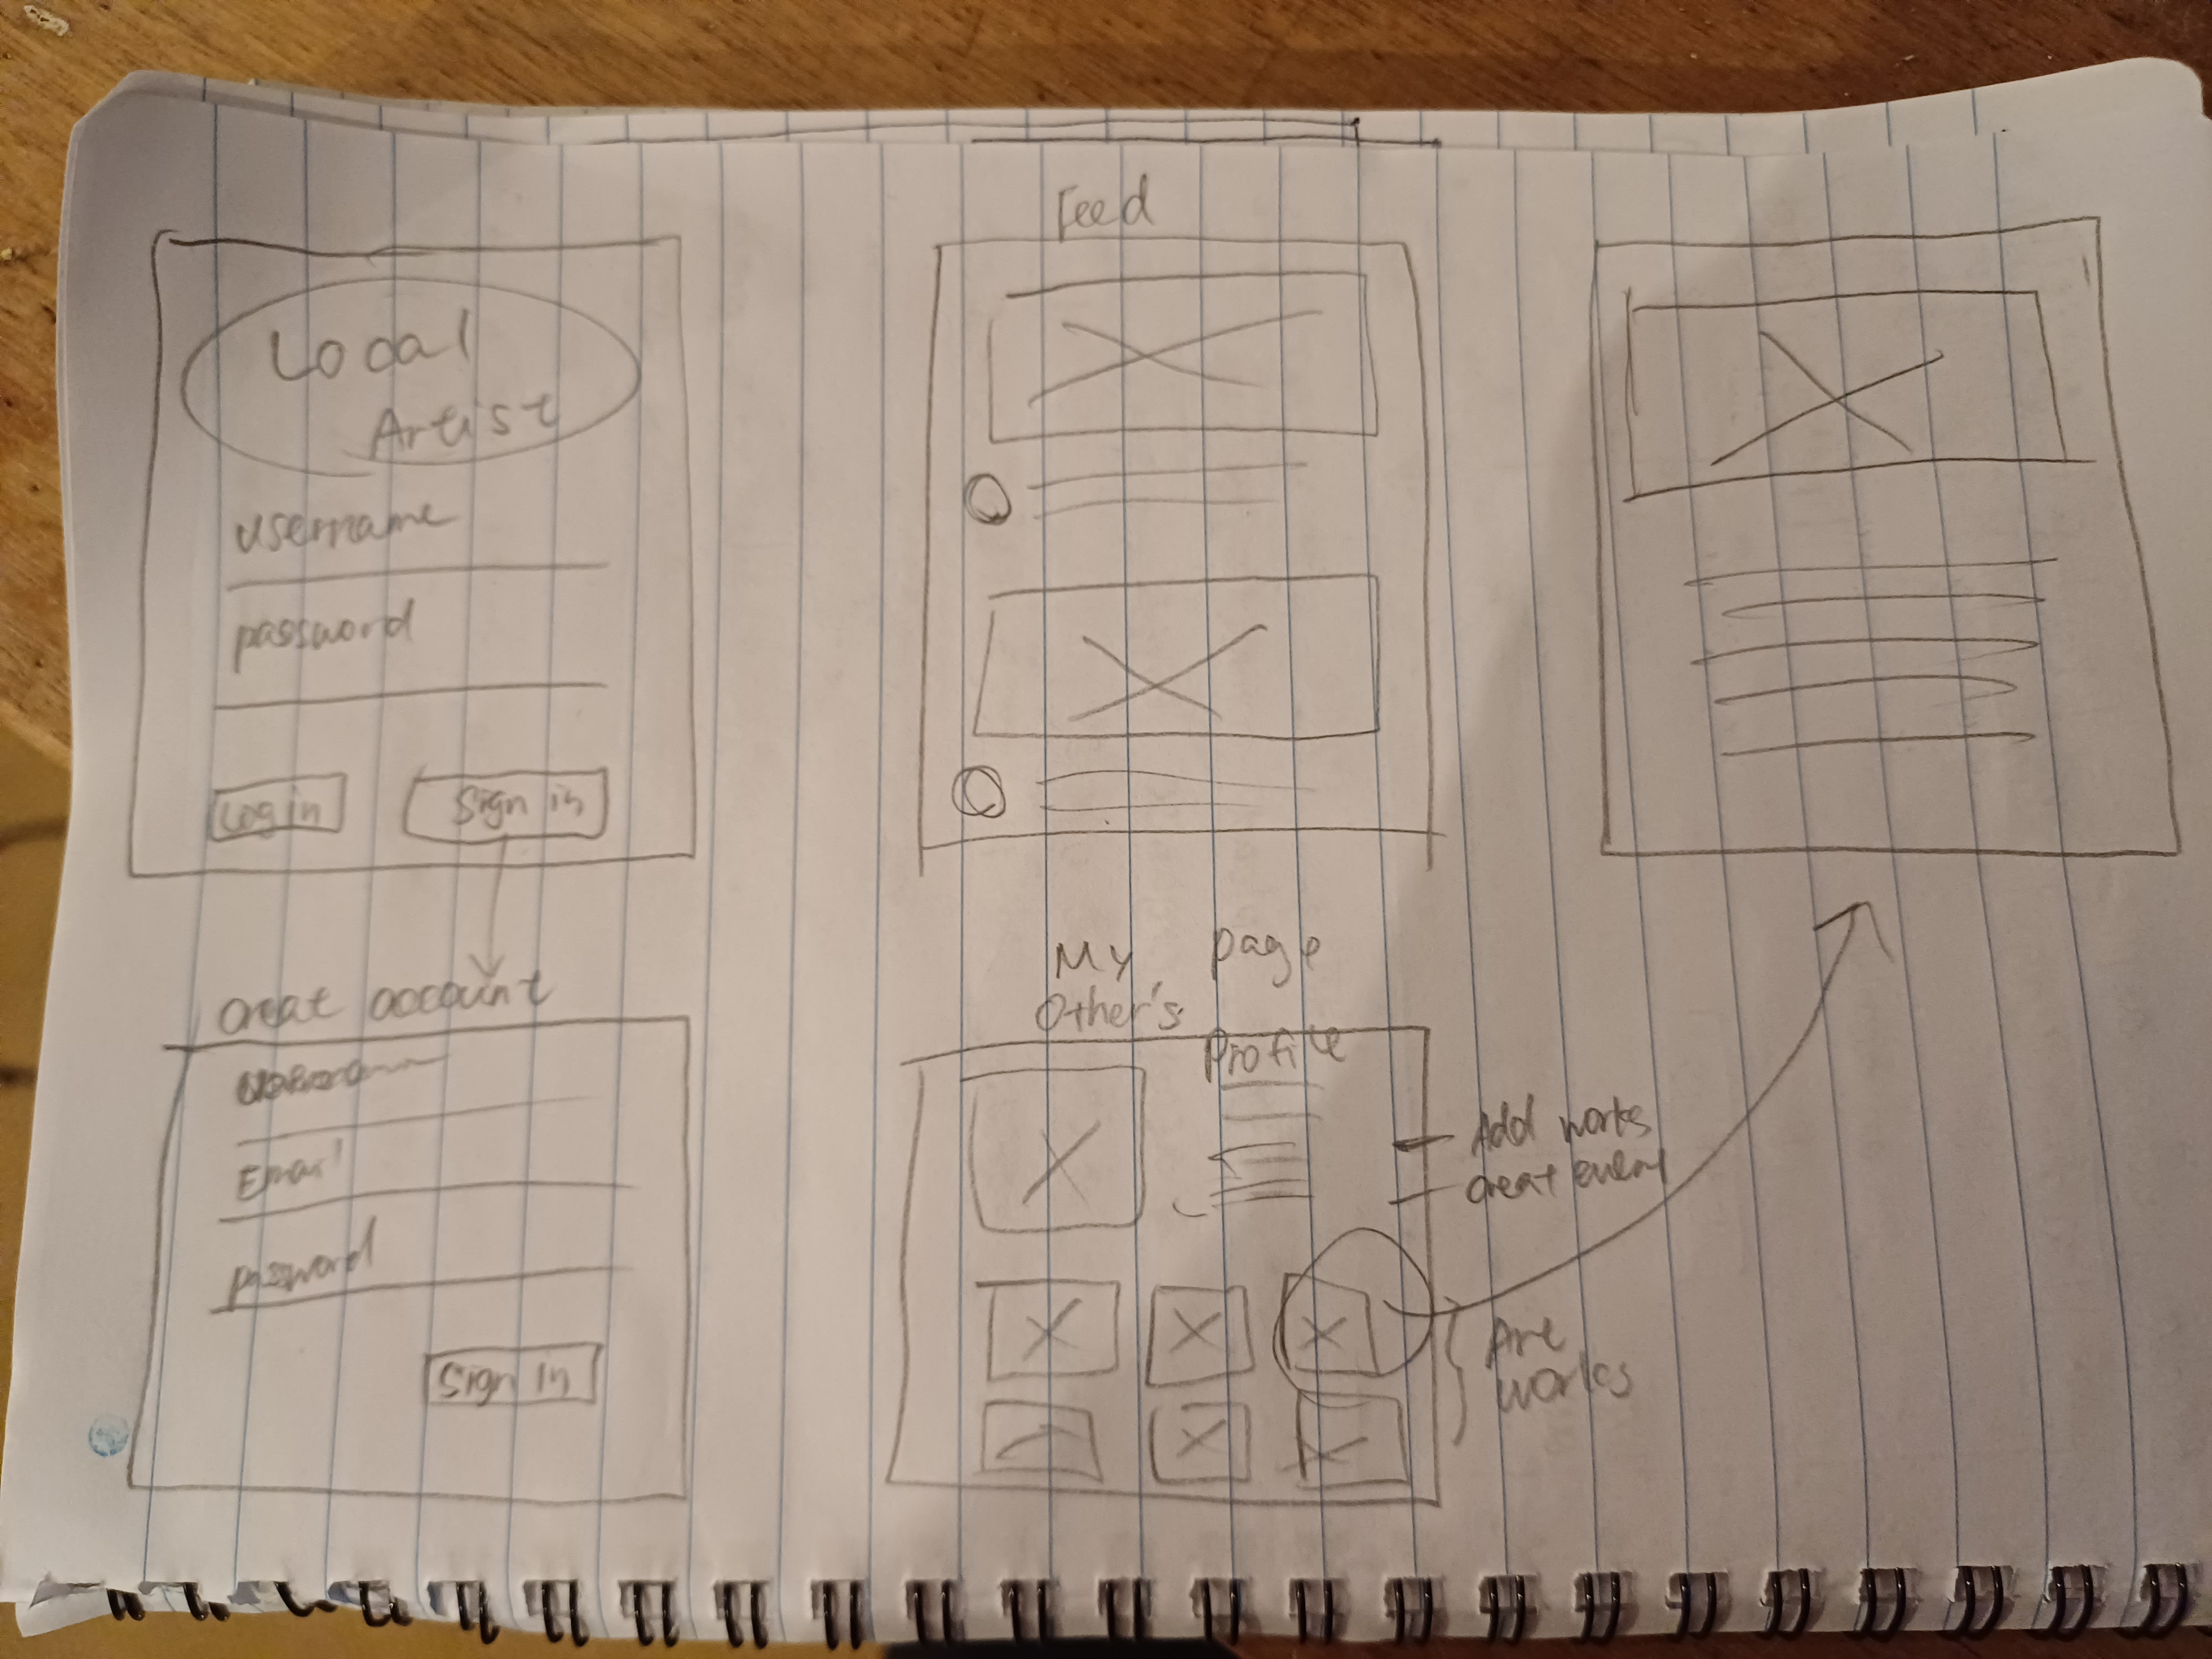 Local
Artist
username
password
Log in
Sign in
Creat account
Email
password
Sign in
Feed
My page
Other's
Profile
Add works
creat event
Art
works